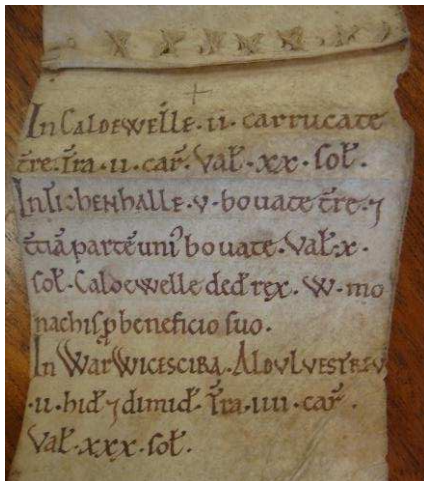 In Caldewelle · ii · carrucate
t̄re · T̄ra · ii · car̄ · Val̄ · xx · sol̄ ·
In Tichenhalle · v · bovate t̄re · ⁊
t̄ciā partē uniꝰ bovate · Val̄ · x ·
sol̄ · Caldewelle ded̄ rex · W · mo
nachis p̱ beneficio suo ·
In Warwicescira · Aldulvestreu
· ii · hid̄ ⁊ dimid̄ · T̄ra · iiii · car̄ ·
Val̄ · xxx · sol̄ ·